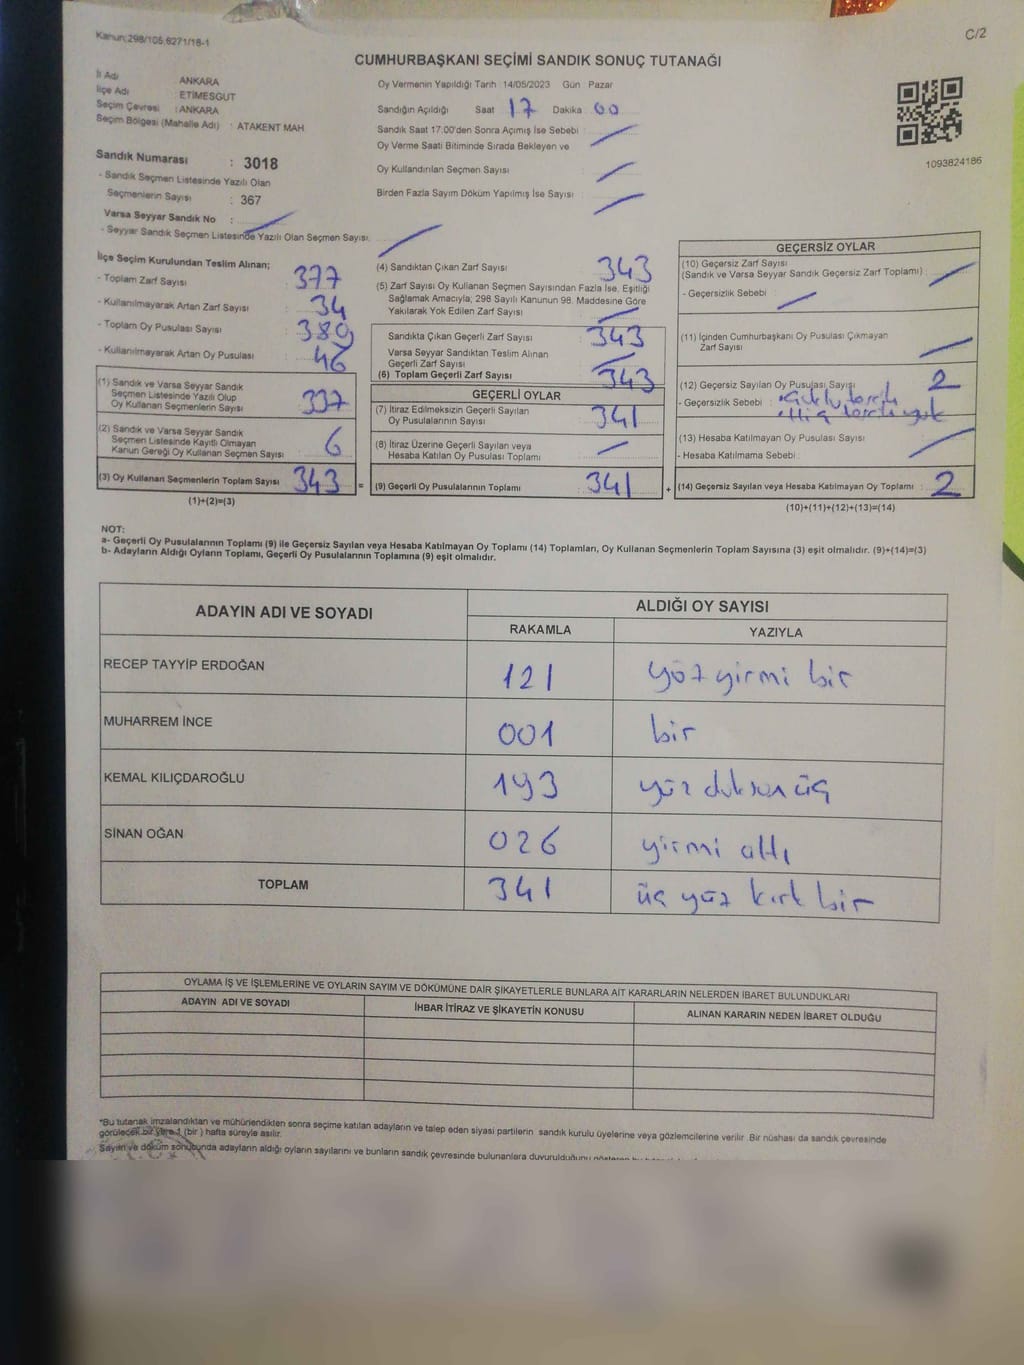 Kanun:298/105,6271/18-1
C/2
CUMHURBAŞKANI SEÇİMİ SANDIK SONUÇ TUTANAĞI
İl Adı : ANKARA
İlçe Adı : ETİMESGUT
Seçim Çevresi : ANKARA
Seçim Bölgesi (Mahalle Adı) : ATAKENT MAH
Oy Vermenin Yapıldığı Tarih :14/05/2023 Gün Pazar
Sandığın Açıldığı Saat 17 Dakika 00
Sandık Saat 17.00'den Sonra Açımış İse Sebebi :
Oy Verme Saati Bitiminde Sırada Bekleyen ve
Oy Kullandırılan Seçmen Sayısı :
Birden Fazla Sayım Döküm Yapılmış İse Sayısı :
1093824186
Sandık Numarası : 3018
- Sandık Seçmen Listesinde Yazılı Olan
Seçmenlerin Sayısı : 367
Varsa Seyyar Sandık No :
- Seyyar Sandık Seçmen Listesinde Yazılı Olan Seçmen Sayısı:
İlçe Seçim Kurulundan Teslim Alınan;
- Toplam Zarf Sayısı : 377
- Kullanılmayarak Artan Zarf Sayısı : 34
- Toplam Oy Pusulası Sayısı : 389
- Kullanılmayarak Artan Oy Pusulası : 46
(1) Sandık ve Varsa Seyyar Sandık
Seçmen Listesinde Yazılı Olup
Oy Kullanan Seçmenlerin Sayısı : 337
(2) Sandık ve Varsa Seyyar Sandık
Seçmen Listesinde Kayıtlı Olmayan
Kanun Gereği Oy Kullanan Seçmen Sayısı : 6
(3) Oy Kullanan Seçmenlerin Toplam Sayısı : 343
(1)+(2)=(3)
(4) Sandıktan Çıkan Zarf Sayısı : 343
(5) Zarf Sayısı Oy Kullanan Seçmen Sayısından Fazla İse, Eşitliği
Sağlamak Amacıyla; 298 Sayılı Kanunun 98. Maddesine Göre
Yakılarak Yok Edilen Zarf Sayısı :
Sandıkta Çıkan Geçerli Zarf Sayısı : 343
Varsa Seyyar Sandıktan Teslim Alınan
Geçerli Zarf Sayısı :
(6) Toplam Geçerli Zarf Sayısı : 343
GEÇERLİ OYLAR
(7) İtiraz Edilmeksizin Geçerli Sayılan
Oy Pusulalarının Sayısı : 341
(8) İtiraz Üzerine Geçerli Sayılan veya
Hesaba Katılan Oy Pusulası Toplamı :
= (9) Geçerli Oy Pusulalarının Toplamı : 341 +
GEÇERSİZ OYLAR
(10) Geçersiz Zarf Sayısı
(Sandık ve Varsa Seyyar Sandık Geçersiz Zarf Toplamı) :
- Geçersizlik Sebebi :
(11) İçinden Cumhurbaşkanı Oy Pusulası Çıkmayan
Zarf Sayısı :
(12) Geçersiz Sayılan Oy Pusulası Sayısı : 2
- Geçersizlik Sebebi :
(13) Hesaba Katılmayan Oy Pusulası Sayısı :
- Hesaba Katılmama Sebebi :
(14) Geçersiz Sayılan veya Hesaba Katılmayan Oy Toplamı : 2
(10)+(11)+(12)+(13)=(14)
NOT:
a- Geçerli Oy Pusulalarının Toplamı (9) ile Geçersiz Sayılan veya Hesaba Katılmayan Oy Toplamı (14) Toplamları, Oy Kullanan Seçmenlerin Toplam Sayısına (3) eşit olmalıdır. (9)+(14)=(3)
b- Adayların Aldığı Oyların Toplamı, Geçerli Oy Pusulalarının Toplamına (9) eşit olmalıdır.
ADAYIN ADI VE SOYADI
ALDIĞI OY SAYISI
RAKAMLA YAZIYLA
RECEP TAYYİP ERDOĞAN 121 yüz yirmi bir
MUHARREM İNCE 001 bir
KEMAL KILIÇDAROĞLU 193 yüz doksan üç
SİNAN OĞAN 026 yirmi altı
TOPLAM 341 üç yüz kırk bir
OYLAMA İŞ VE İŞLEMLERİNE VE OYLARIN SAYIM VE DÖKÜMÜNE DAİR ŞİKAYETLERLE BUNLARA AİT KARARLARIN NELERDEN İBARET BULUNDUKLARI
ADAYIN ADI VE SOYADI İHBAR İTİRAZ VE ŞİKAYETİN KONUSU ALINAN KARARIN NEDEN İBARET OLDUĞU
*Bu tutanak imzalandıktan ve mühürlendikten sonra seçime katılan adayların ve talep eden siyasi partilerin sandık kurulu üyelerine veya gözlemcilerine verilir. Bir nüshası da sandık çevresinde
görülecek bir yere 1 (bir ) hafta süreyle asılır.
Sayım ve döküm sonucunda adayların aldığı oyların sayılarını ve bunların sandık çevresinde bulunanlara duyurulduğunu